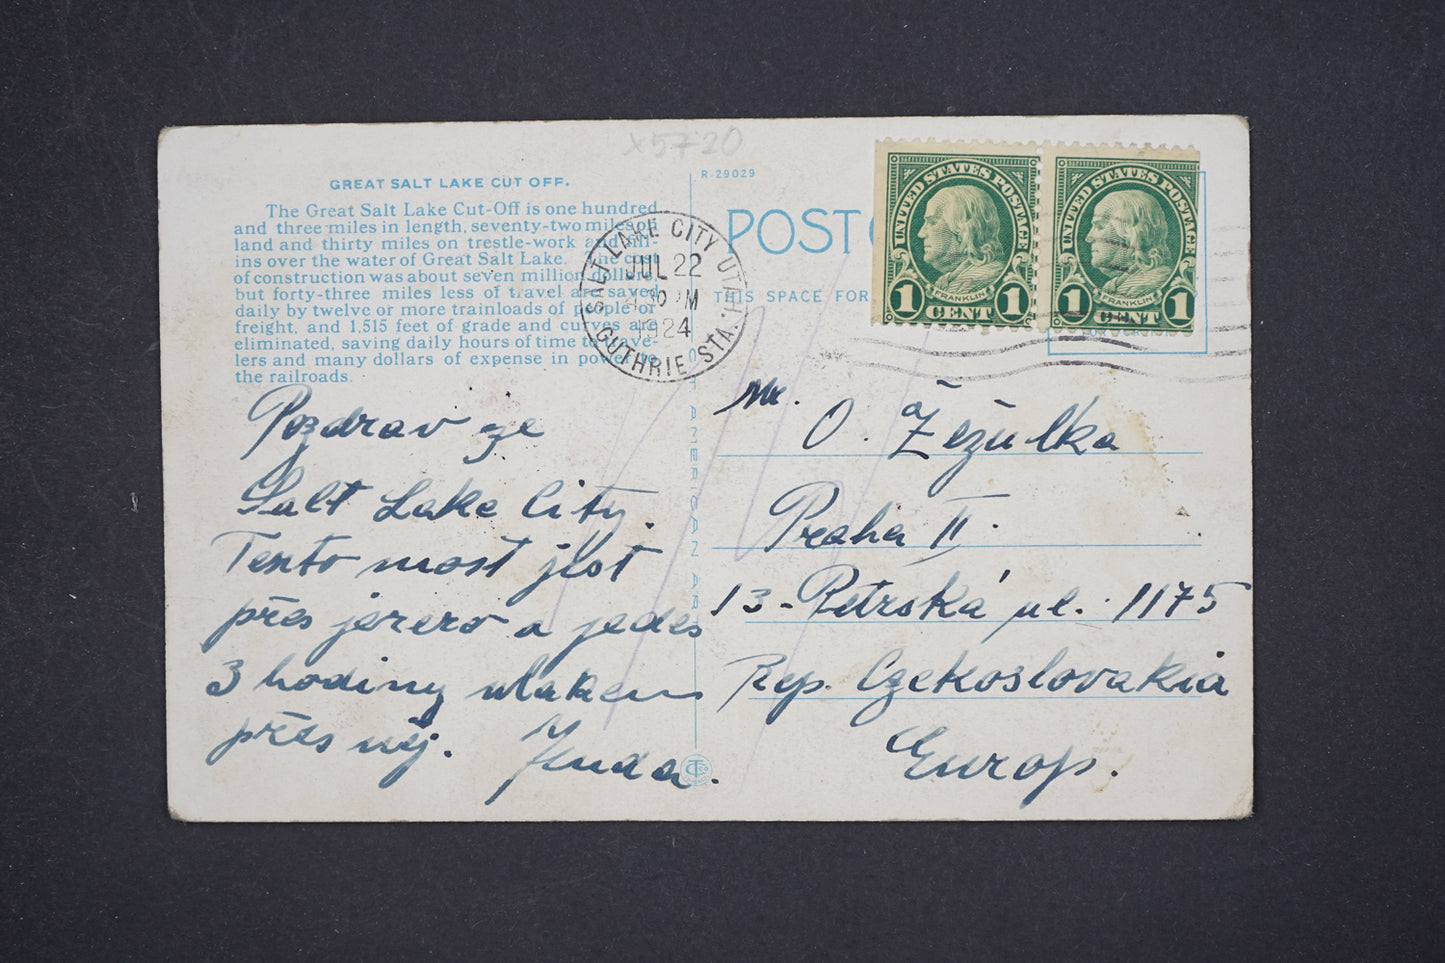 x5720
GREAT SALT LAKE CUT OFF.
The Great Salt Lake Cut-Off is one hundred
and three miles in length, seventy-two miles of
land and thirty miles on trestle-work and fill-
ins over the water of Great Salt Lake. The cost
of construction was about seven million dollars,
but forty-three miles less of travel are saved
daily by twelve or more trainloads of people or
freight, and 1,515 feet of grade and curves are
eliminated, saving daily hours of time to trave-
lers and many dollars of expense in power to
the railroads.
R-29029
POSTC
THIS SPACE FOR
SALT LAKE CITY UTAH.
JUL 22
30 PM
1924
GUTHRIE STA.
UNITED STATES POSTAGE
FRANKLIN
1 CENT 1
UNITED STATES POSTAGE
FRANKLIN
1 CENT 1
AMERICAN ART
Pozdrav ze
Salt Lake City.
Tento most jest
přes jezero a jedes
3 hodiny vlakem
přes něj. Jenda.
Mr.
O. Žežulka
Praha II.
13 - Petrská ul. 1175
Rep. Czekoslovakia
Europ.